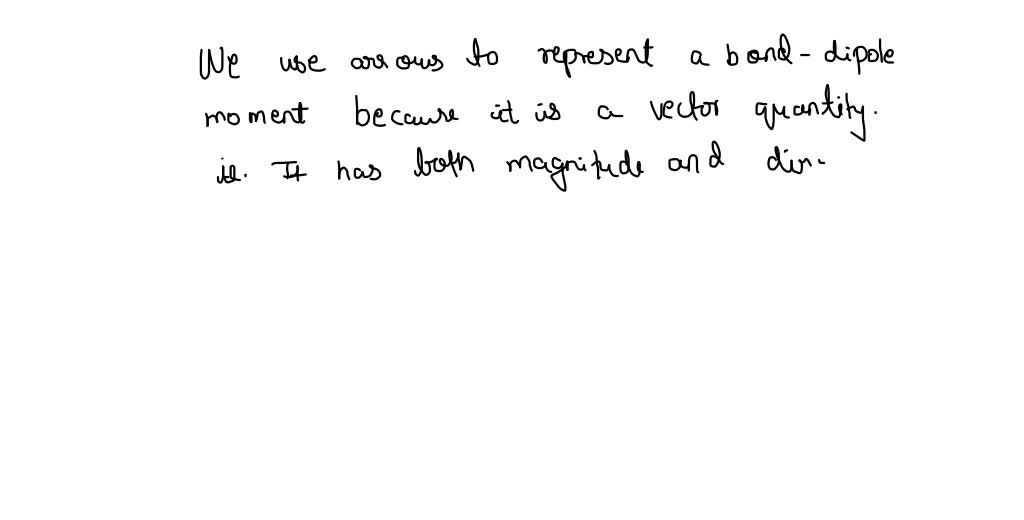 We use arrows to represent a bond-dipole
moment because it is a vector quantity.
ie. It has both magnitude and dir